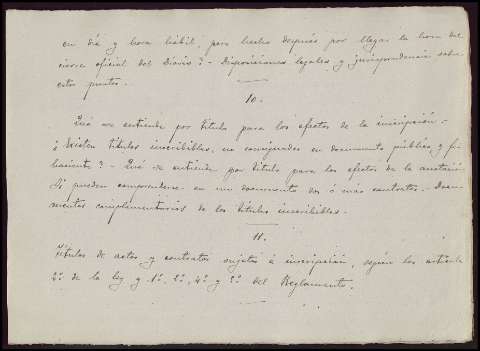 en día y hora hábil, pero hecho después por llegar la hora del
cierre oficial del Diario? - Disposiciones legales y jurisprudencia sobre
estos puntos.
10.
Qué se entiende por título para los efectos de la inscripción. -
¿Existen títulos inscribibles, no consignados en documento público y fe-
haciente? - Qué se entiende por título para los efectos de la anotación
Si pueden comprenderse en un documento dos ó más contratos. - Docu-
mentos complementarios de los títulos inscribibles.
11.
Títulos de actos y contratos sujetos á inscripción, según los artículos
2º de la ley y 1º, 2º, 4º y 5º del Reglamento.